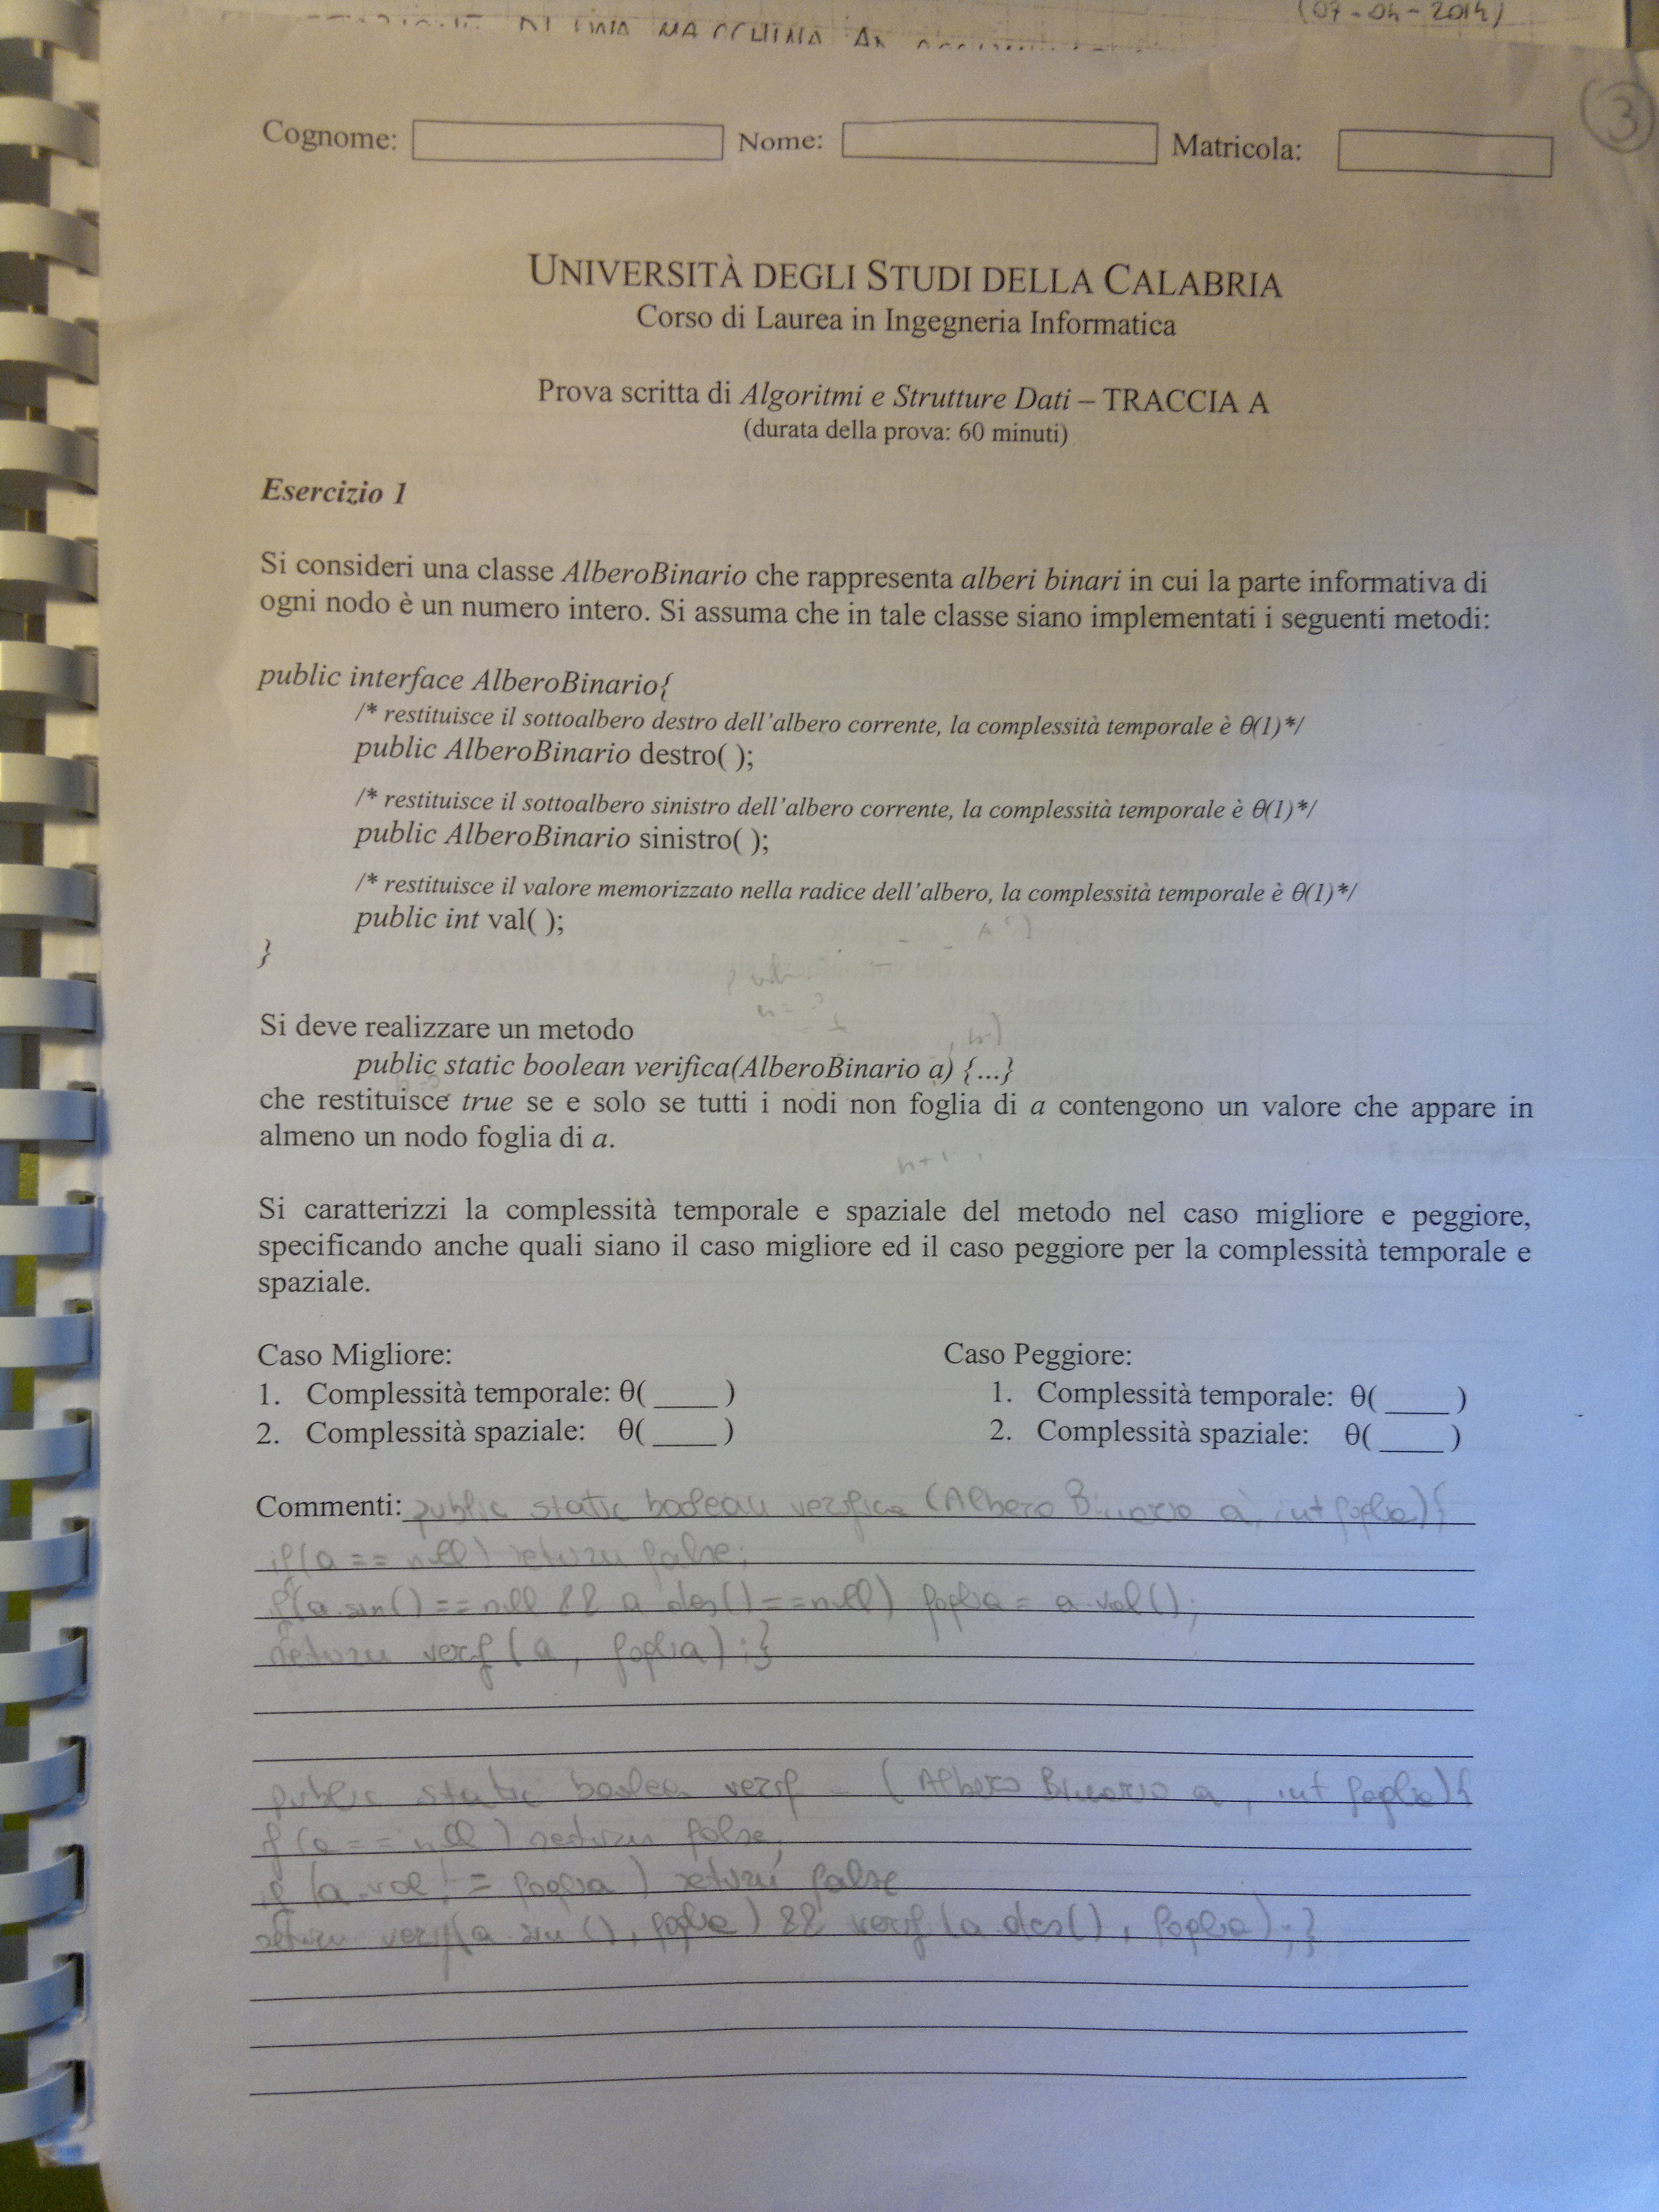 DI UNA MACCHINA AD
(07-04-2014)
3
Cognome: Nome: Matricola:
UNIVERSITÀ DEGLI STUDI DELLA CALABRIA
Corso di Laurea in Ingegneria Informatica
Prova scritta di Algoritmi e Strutture Dati – TRACCIA A
(durata della prova: 60 minuti)
Esercizio 1
Si consideri una classe AlberoBinario che rappresenta alberi binari in cui la parte informativa di
ogni nodo è un numero intero. Si assuma che in tale classe siano implementati i seguenti metodi:
public interface AlberoBinario{
/* restituisce il sottoalbero destro dell'albero corrente, la complessità temporale è θ(1)*/
public AlberoBinario destro( );
/* restituisce il sottoalbero sinistro dell'albero corrente, la complessità temporale è θ(1)*/
public AlberoBinario sinistro( );
/* restituisce il valore memorizzato nella radice dell'albero, la complessità temporale è θ(1)*/
public int val( );
}
Si deve realizzare un metodo
public static boolean verifica(AlberoBinario a) {...}
che restituisce true se e solo se tutti i nodi non foglia di a contengono un valore che appare in
almeno un nodo foglia di a.
n+1
Si caratterizzi la complessità temporale e spaziale del metodo nel caso migliore e peggiore,
specificando anche quali siano il caso migliore ed il caso peggiore per la complessità temporale e
spaziale.
Caso Migliore: Caso Peggiore:
1. Complessità temporale: θ(____) 1. Complessità temporale: θ(____)
2. Complessità spaziale: θ(____) 2. Complessità spaziale: θ(____)
Commenti: public static boolean verifica (Albero Binario a, int foglia){
if(a == null) return false;
if(a.sin() == null && a.des() == null) foglia = a.val();
return verif(a, foglia);}
public static boolean verif (Albero Binario a, int foglia){
if(a == null) return false;
if (a.val != foglia) return false
return verif(a.sin(), foglia) && verif(a.des(), foglia);}